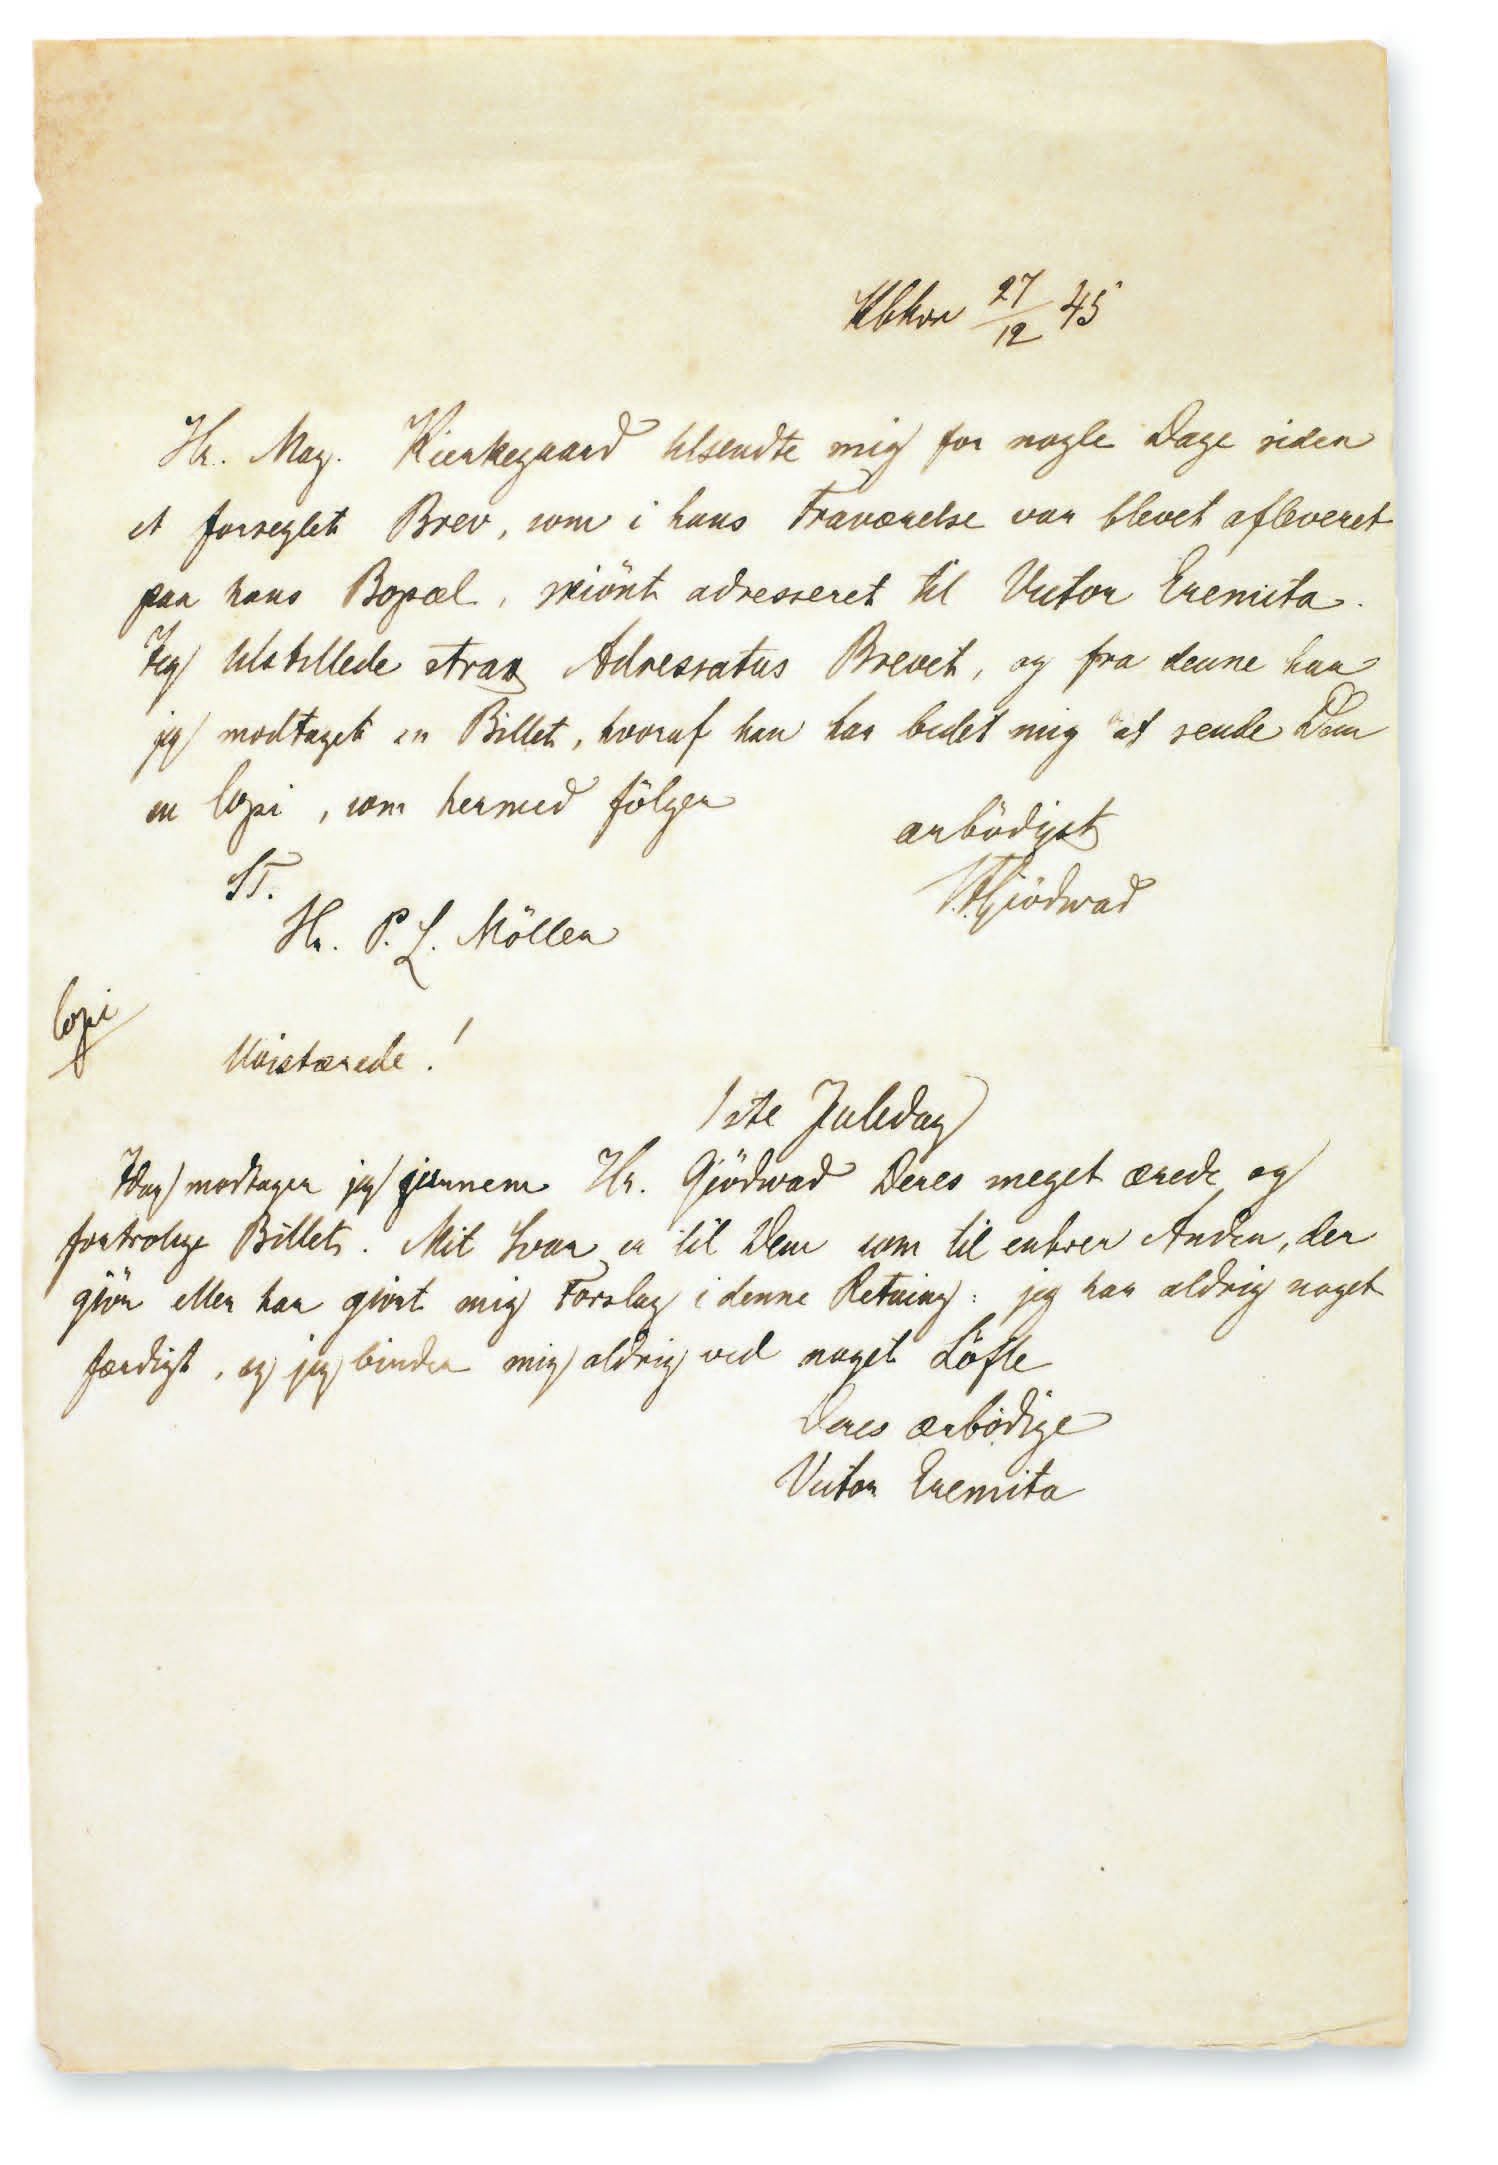 Kbhvn 27/12 45
Hr. Mag. Kierkegaard tilsendte mig for nogle Dage siden
et forseglet Brev, som i hans Fraværelse var blevet afleveret
paa hans Bopæl, skiönt adresseret til Victor Eremita.
Jeg tilstillede strax Adressatus Brevet, og fra denne har
jeg modtaget en Billet, hvoraf han har bedet mig at sende Dem
en Copi, som hermed fölger
ærbödigst
J.F. Giödwad
ST.
Hr. P. L. Möller
Copi
Höistærede!
1ste Juledag
Idag modtager jeg gjennem Hr. Giödwad Deres meget ærede og
fortrolige Billet. Mit Svar er til Dem som til enhver Anden, der
gjör eller har gjort mig Forslag i denne Retning: jeg har aldrig noget
færdigt, og jeg binder mig aldrig ved noget Löfte
Deres ærbödige
Victor Eremita